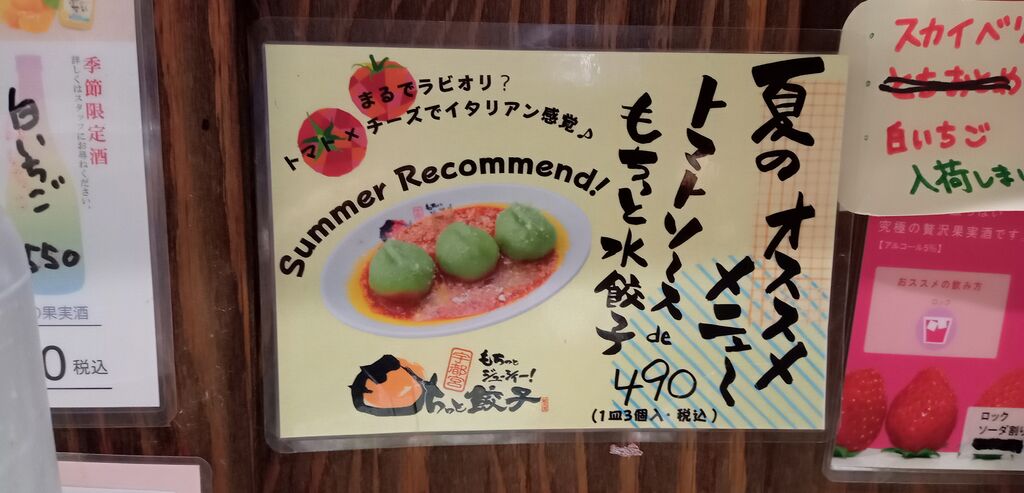 季節限定酒
詳しくはスタッフにお尋ねください。
白いちご
550
の果実酒
0 税込
まるでラビオリ？
トマト×チーズでイタリアン感覚♪
Summer Recommend!
夏のオススメ
メニュー
トマトソース de
もちっと水餃子
490
(1皿3個入・税込)
宇都宮
もちっと
ジューシー!
餃子
スカイベリ
とちおとめ
白いちご
入荷しま
究極の贅沢果実酒です
【アルコール5%】
おススメの飲み方
ロック
ロック
ソーダ割り